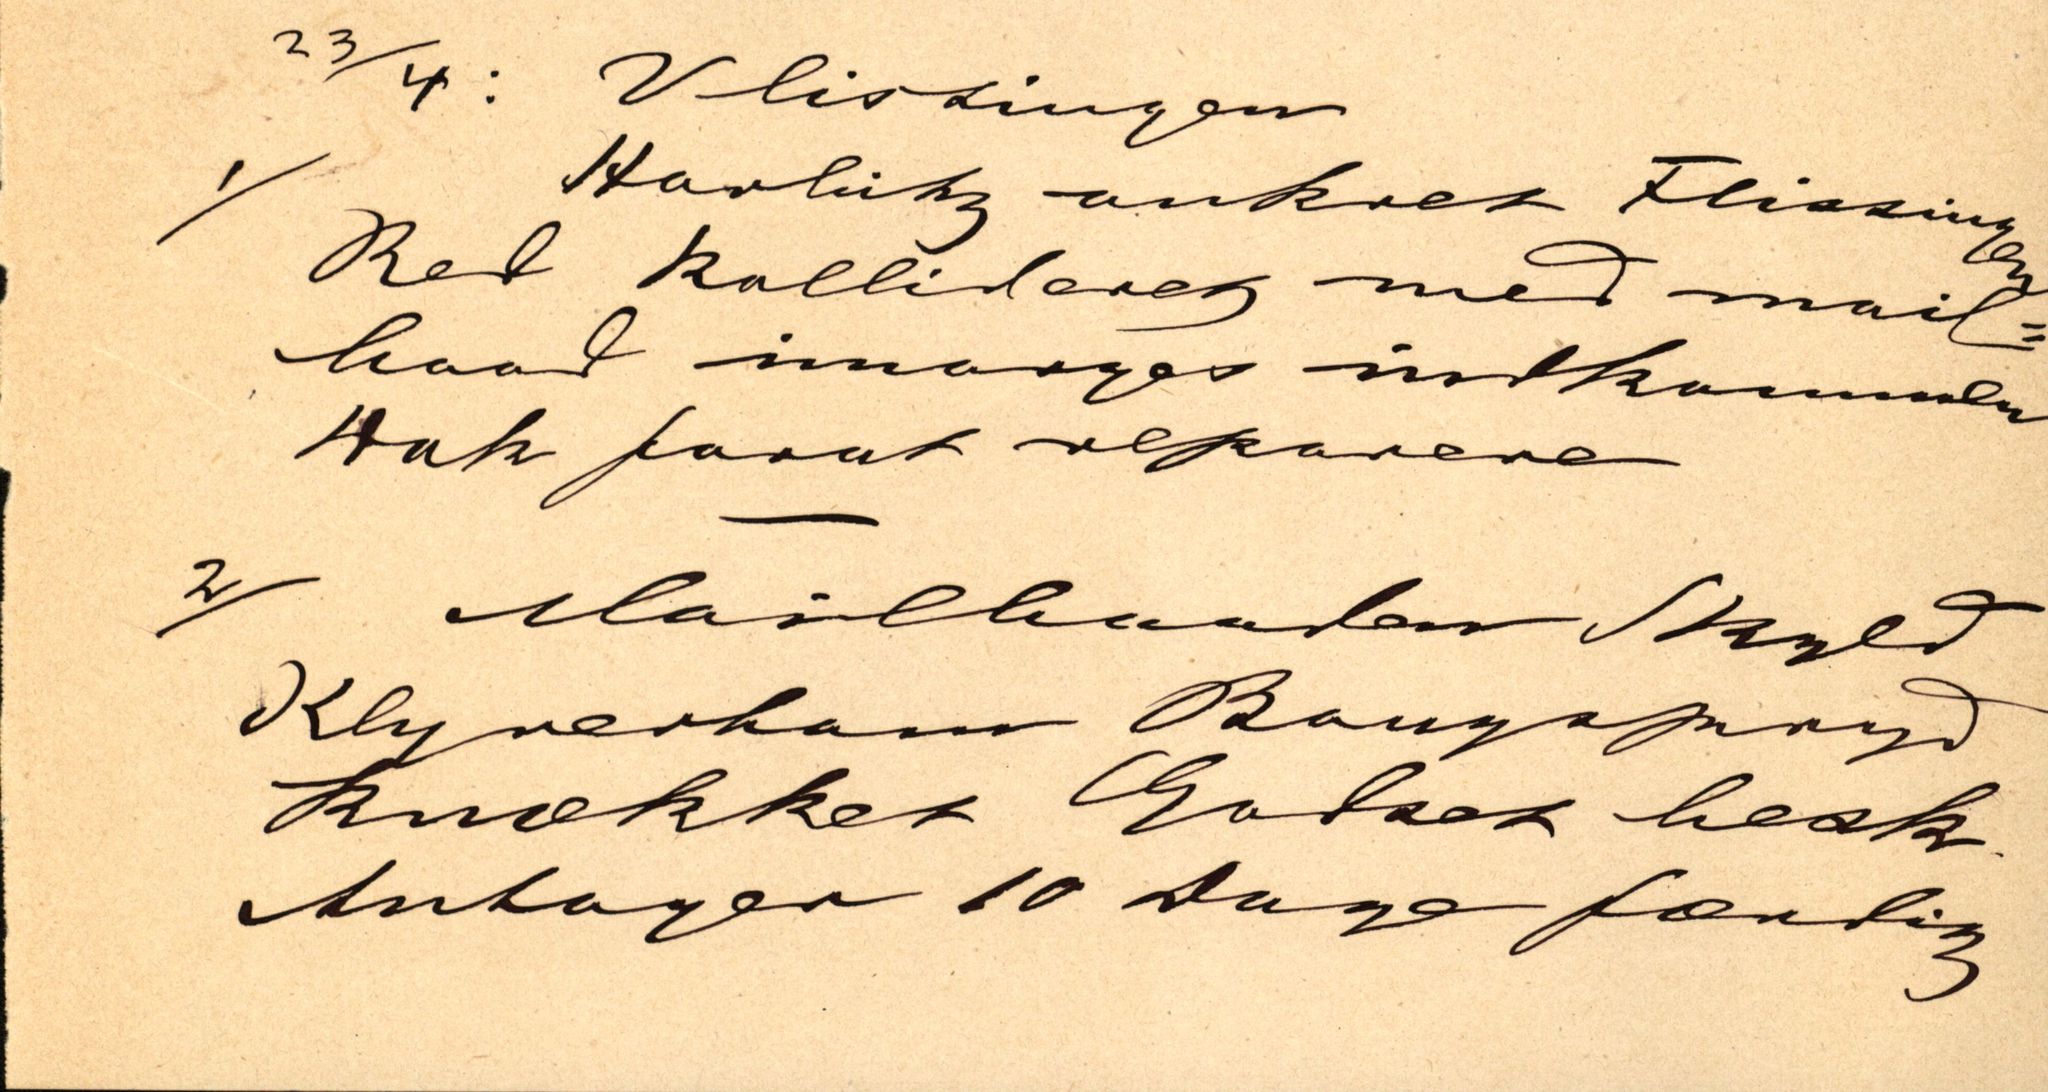 23/4: Vlissingen
1/ Havlütz ankret Flissingen
Red Kollideret med mail=
baad imorges indkommen
Hak forat reparere
2/ Mailbaaden Skyld
Klyverbom Bougspryd
knækket Godset besk.
Antager 10 Dage færdig